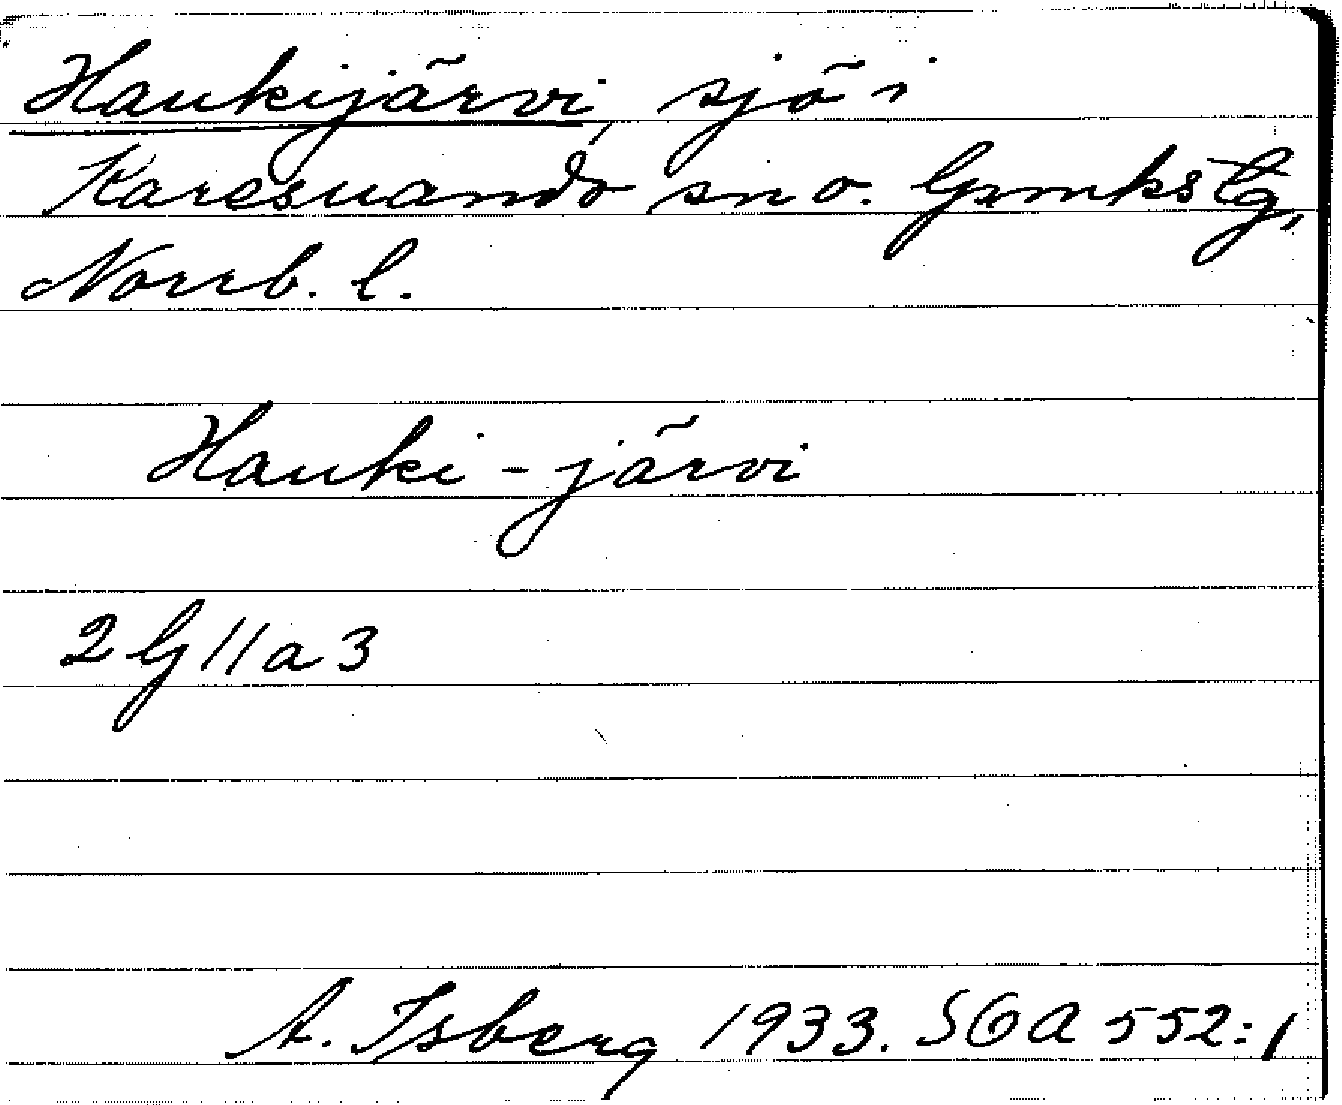 Haukijärvi, sjö i
Karesuando sn o. lpmks tg,
Norrb. l.
Hauki-järvi
2 G 11 a 3
A. Isberg 1933. SOA 552:1